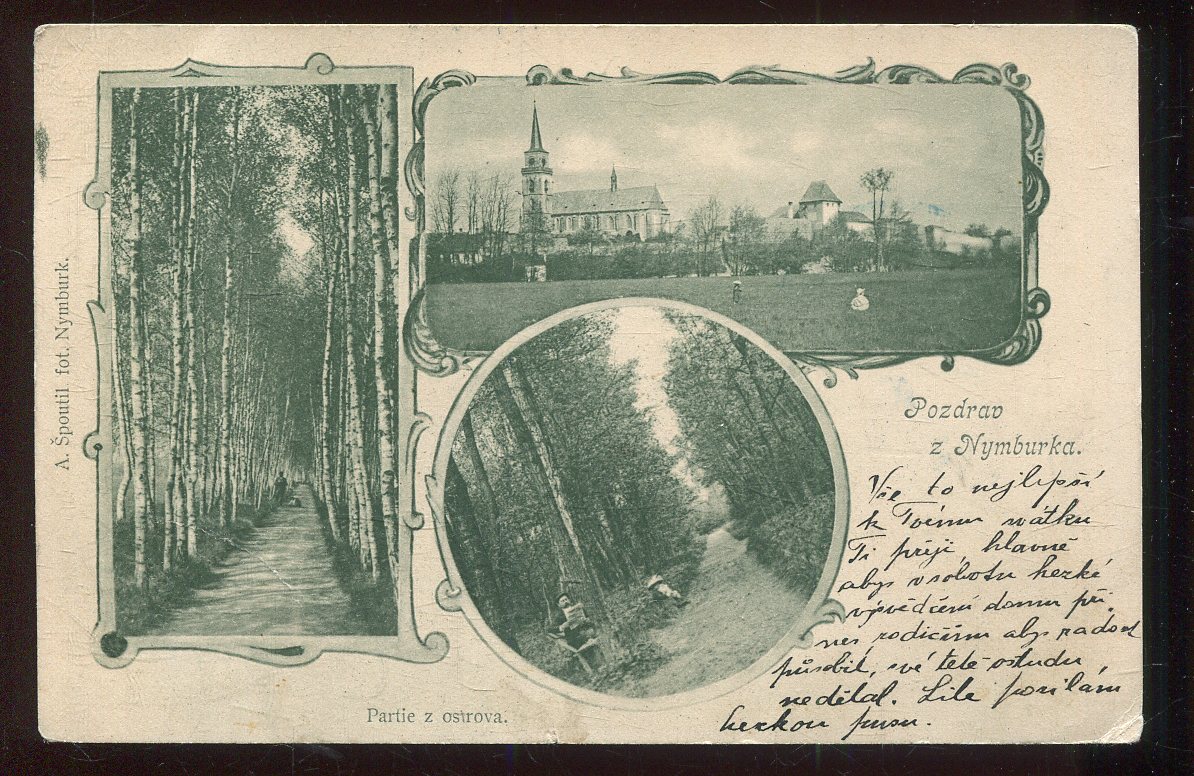 A. Špoutil fot. Nymburk.
Pozdrav
z Nymburka.
Vše to nejlepší
k Tvému svátku
Ti přeji, hlavně
abys v sobotu hezké
vysvědčení domu při-
nes, rodičům abys radost
působil, své tetě ostudu
nedělal. Lile posílám
hezkou pusu.
Partie z ostrova.